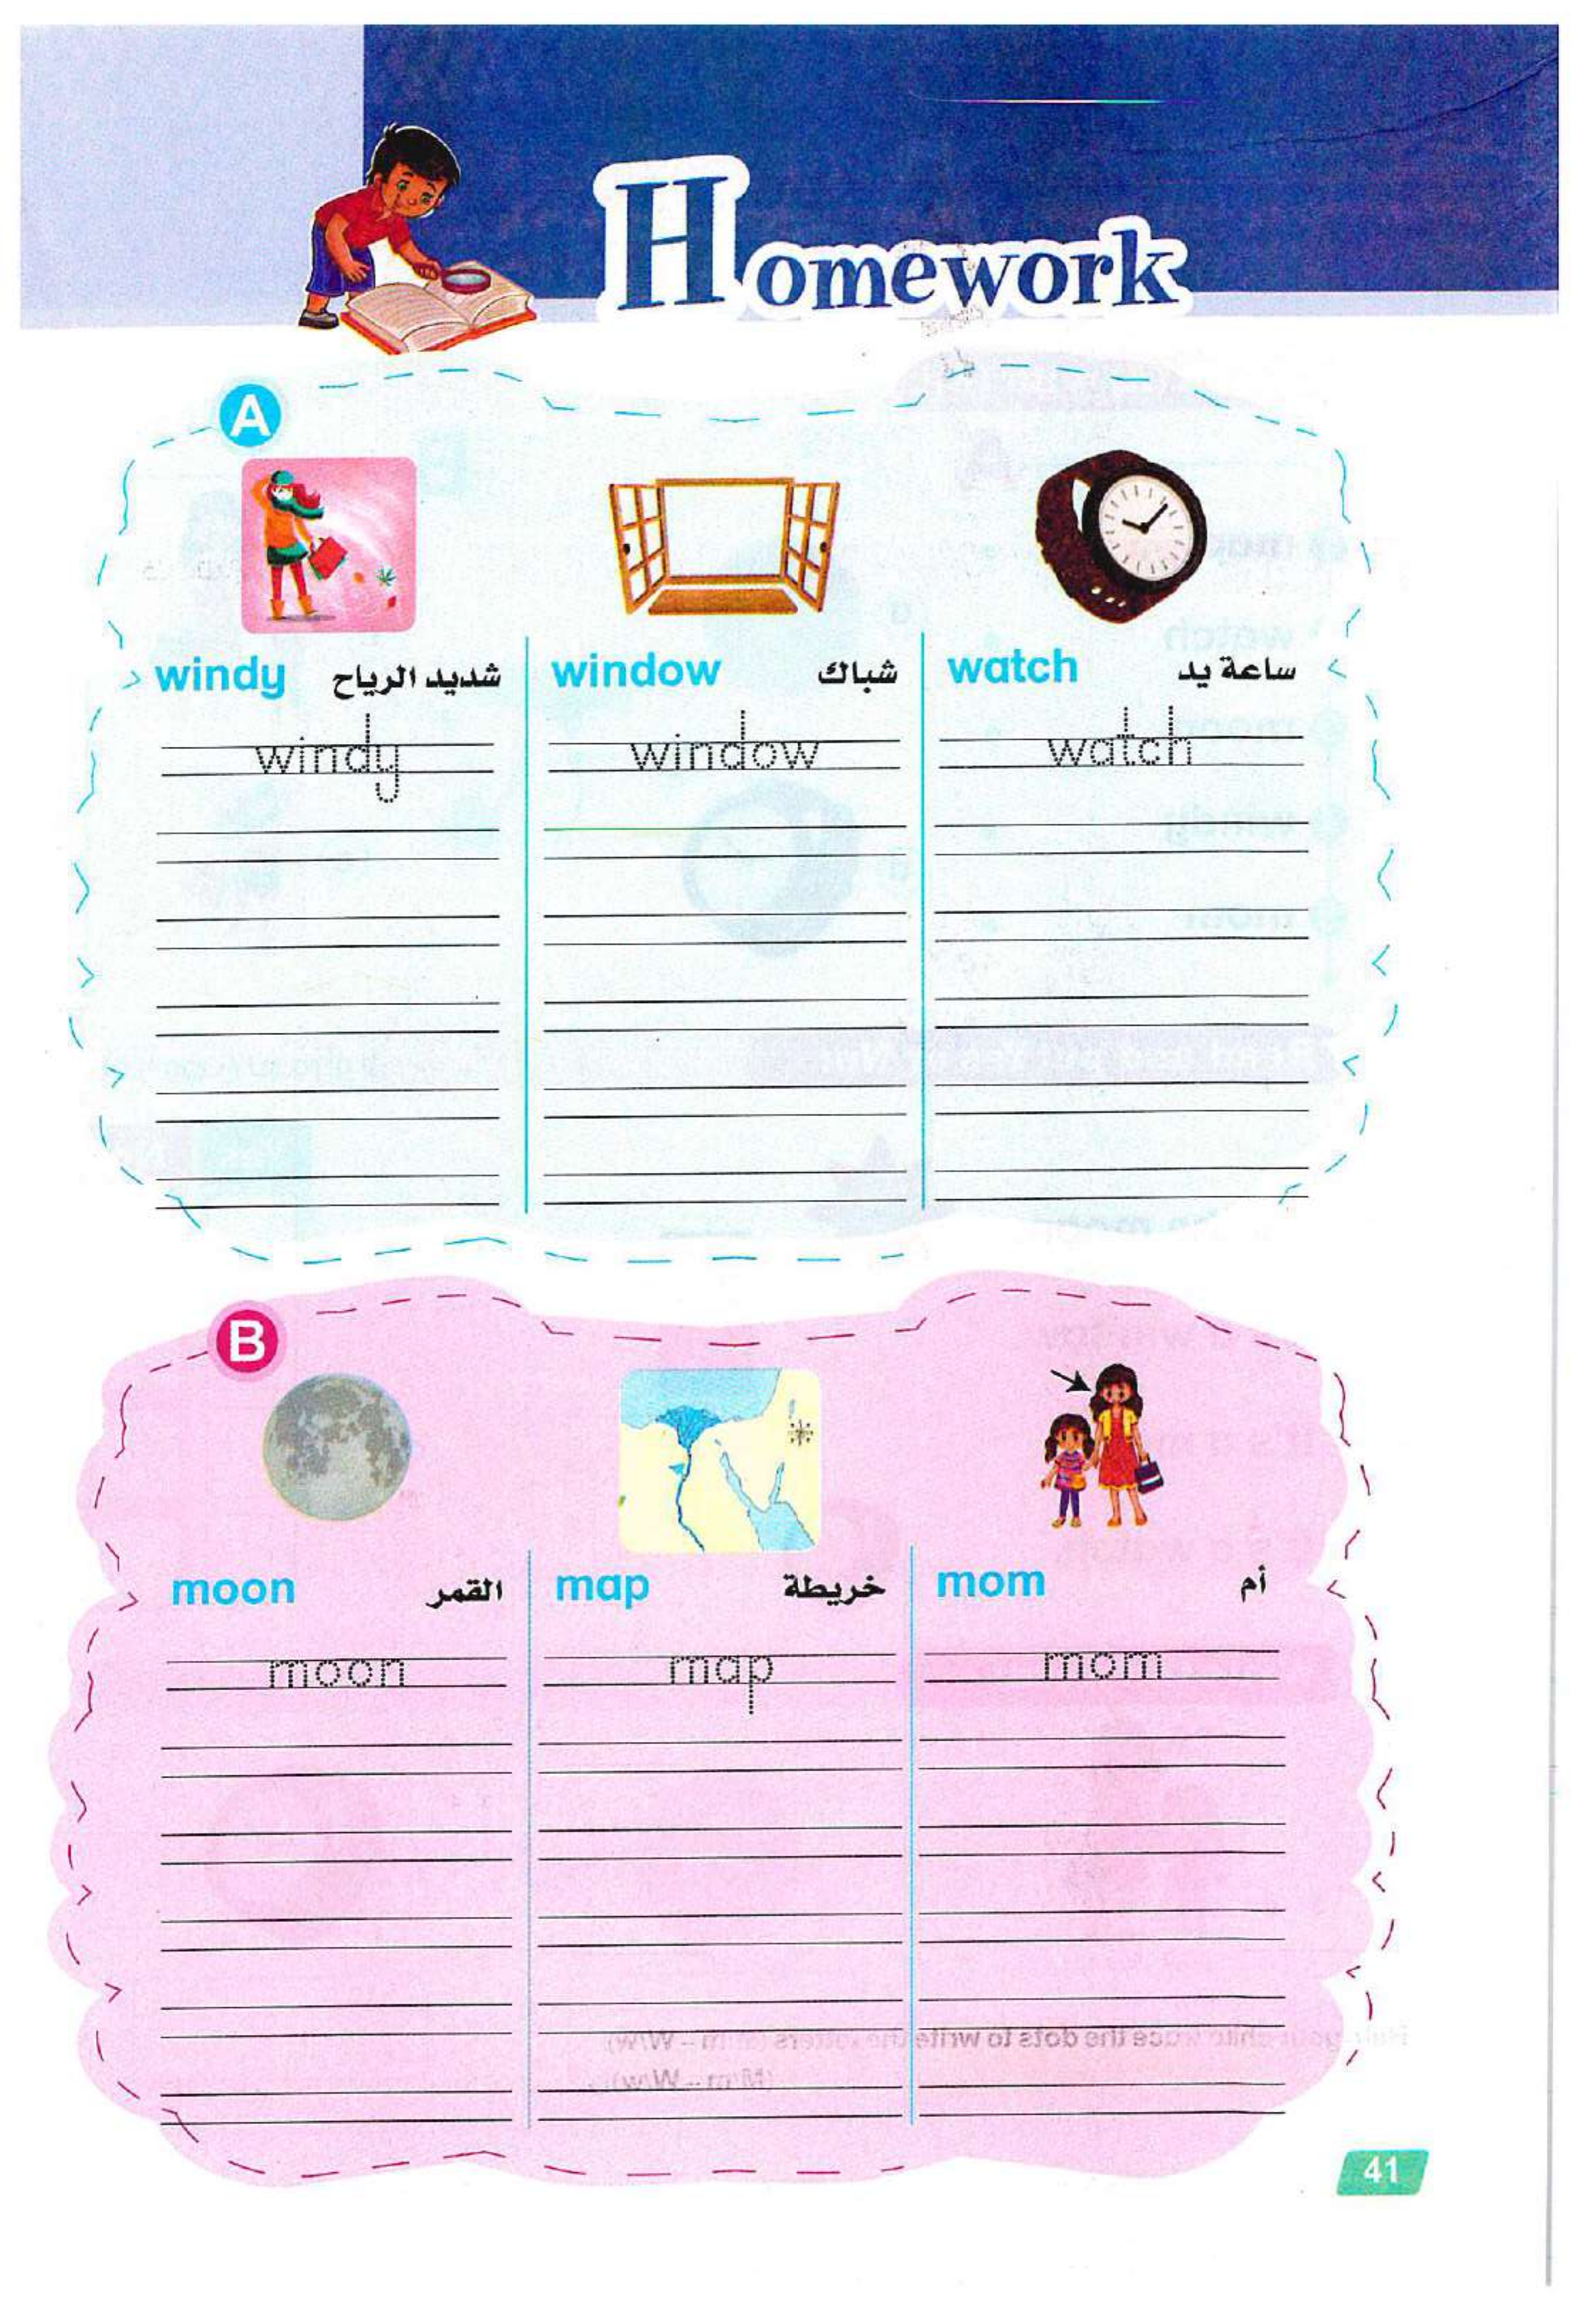 Homework
A
windy شديد الرياح
window شباك
watch ساعة يد
windy
window
watch
B
moon القمر
map خريطة
mom أم
moon
map
mom
41